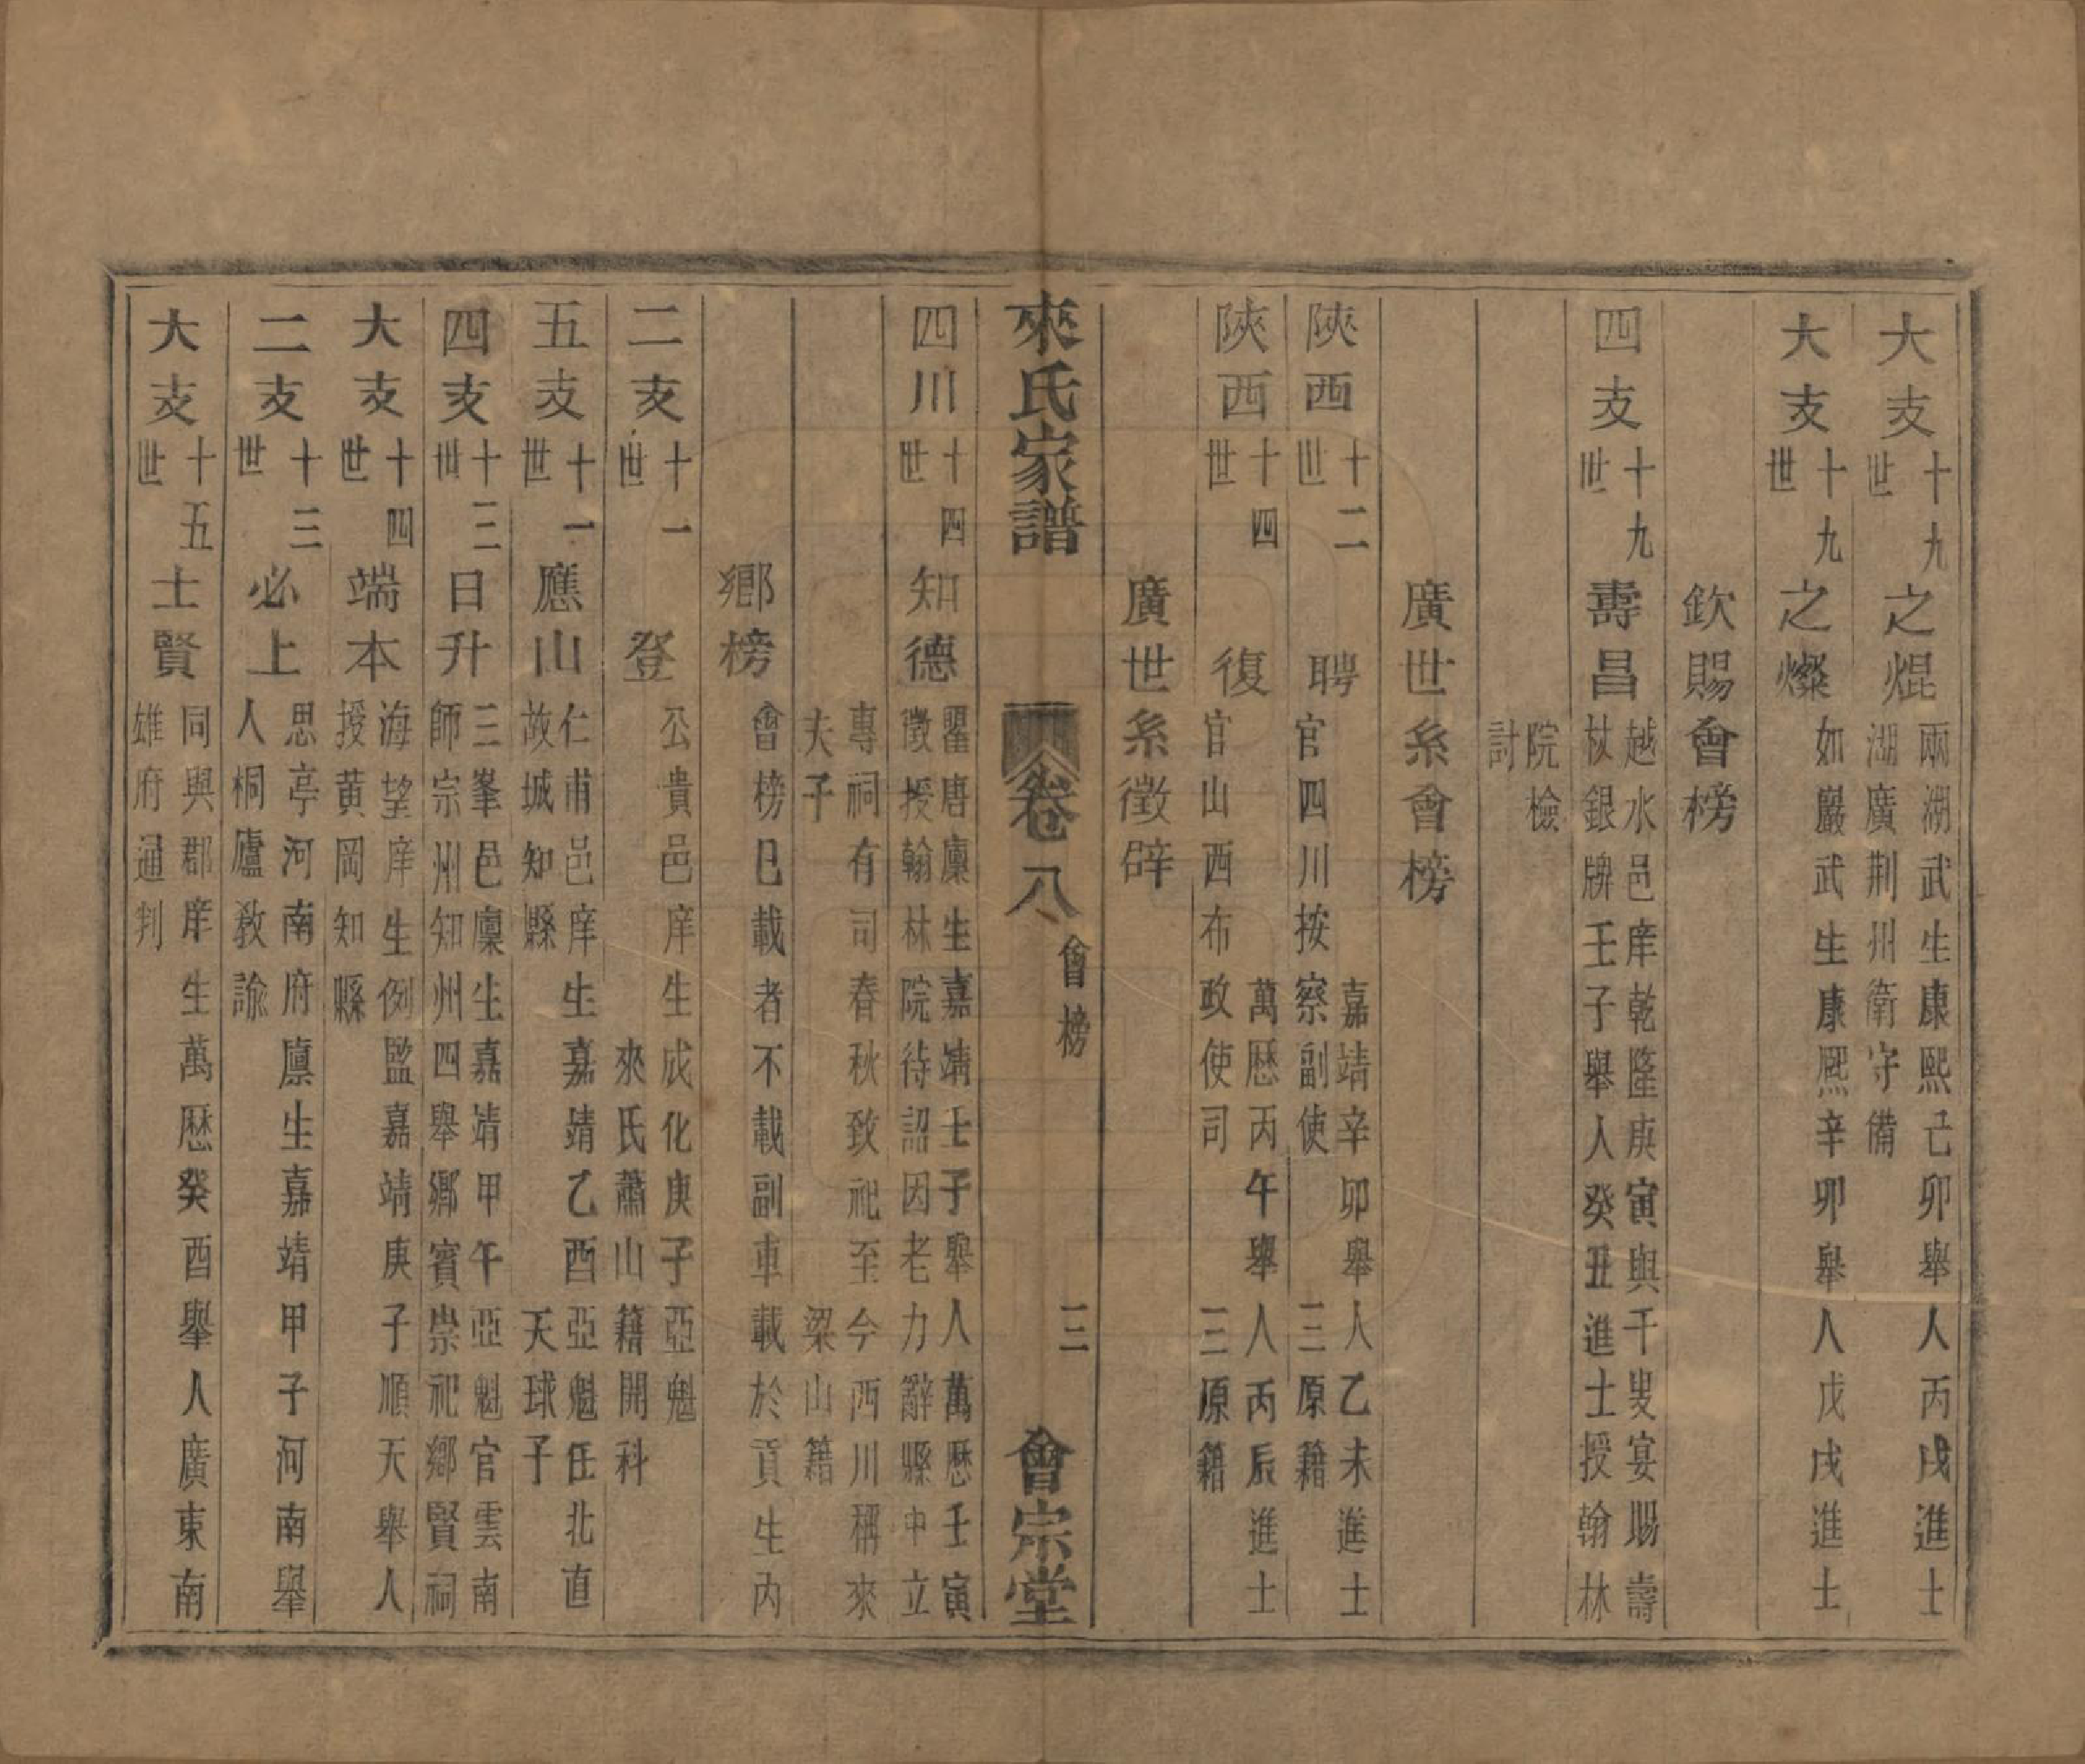 大支十九世之焜兩湖武生康熙己卯舉人丙戌進士湖廣荆州衛守備
大支十九世之燦如巖武生康熙辛卯舉人戊戌進士
欽賜會榜
四支十九世壽昌越水邑庠乾隆庚寅與千叟宴賜壽杖銀牌壬子舉人癸丑進士授翰林
院檢討
廣世系會榜
陝西十二世聘嘉靖辛卯舉人乙未進士官四川按察副使三原籍
陝西十四世復萬歷丙午舉人丙辰進士官山西布政使司三原籍
廣世系徵辟
來氏家譜 卷八 會榜 三 會宗堂
四川十四世知德瞿唐廩生嘉靖壬子舉人萬歷壬寅徵授翰林院待詔因老力辭縣中立
專祠有司春秋致祀至今西川稱來夫子梁山籍
鄉榜會榜已載者不載副車載於貢生內
二支十一世登公貴邑庠生成化庚子亞魁來氏蕭山籍開科
五支十一世應山仁甫邑庠生嘉靖乙酉亞魁任北直故城知縣天球子
四支十三世日升三峯邑廩生嘉靖甲午亞魁官雲南師宗州知州四舉鄉賓崇祀鄉賢祠
大支十四世端本海望庠生例監嘉靖庚子順天舉人授黃岡知縣
二支十三世必上思亭河南府廩生嘉靖甲子河南舉人桐廬教諭
大支十五世士賢同與郡庠生萬歷癸酉舉人廣東南雄府通判